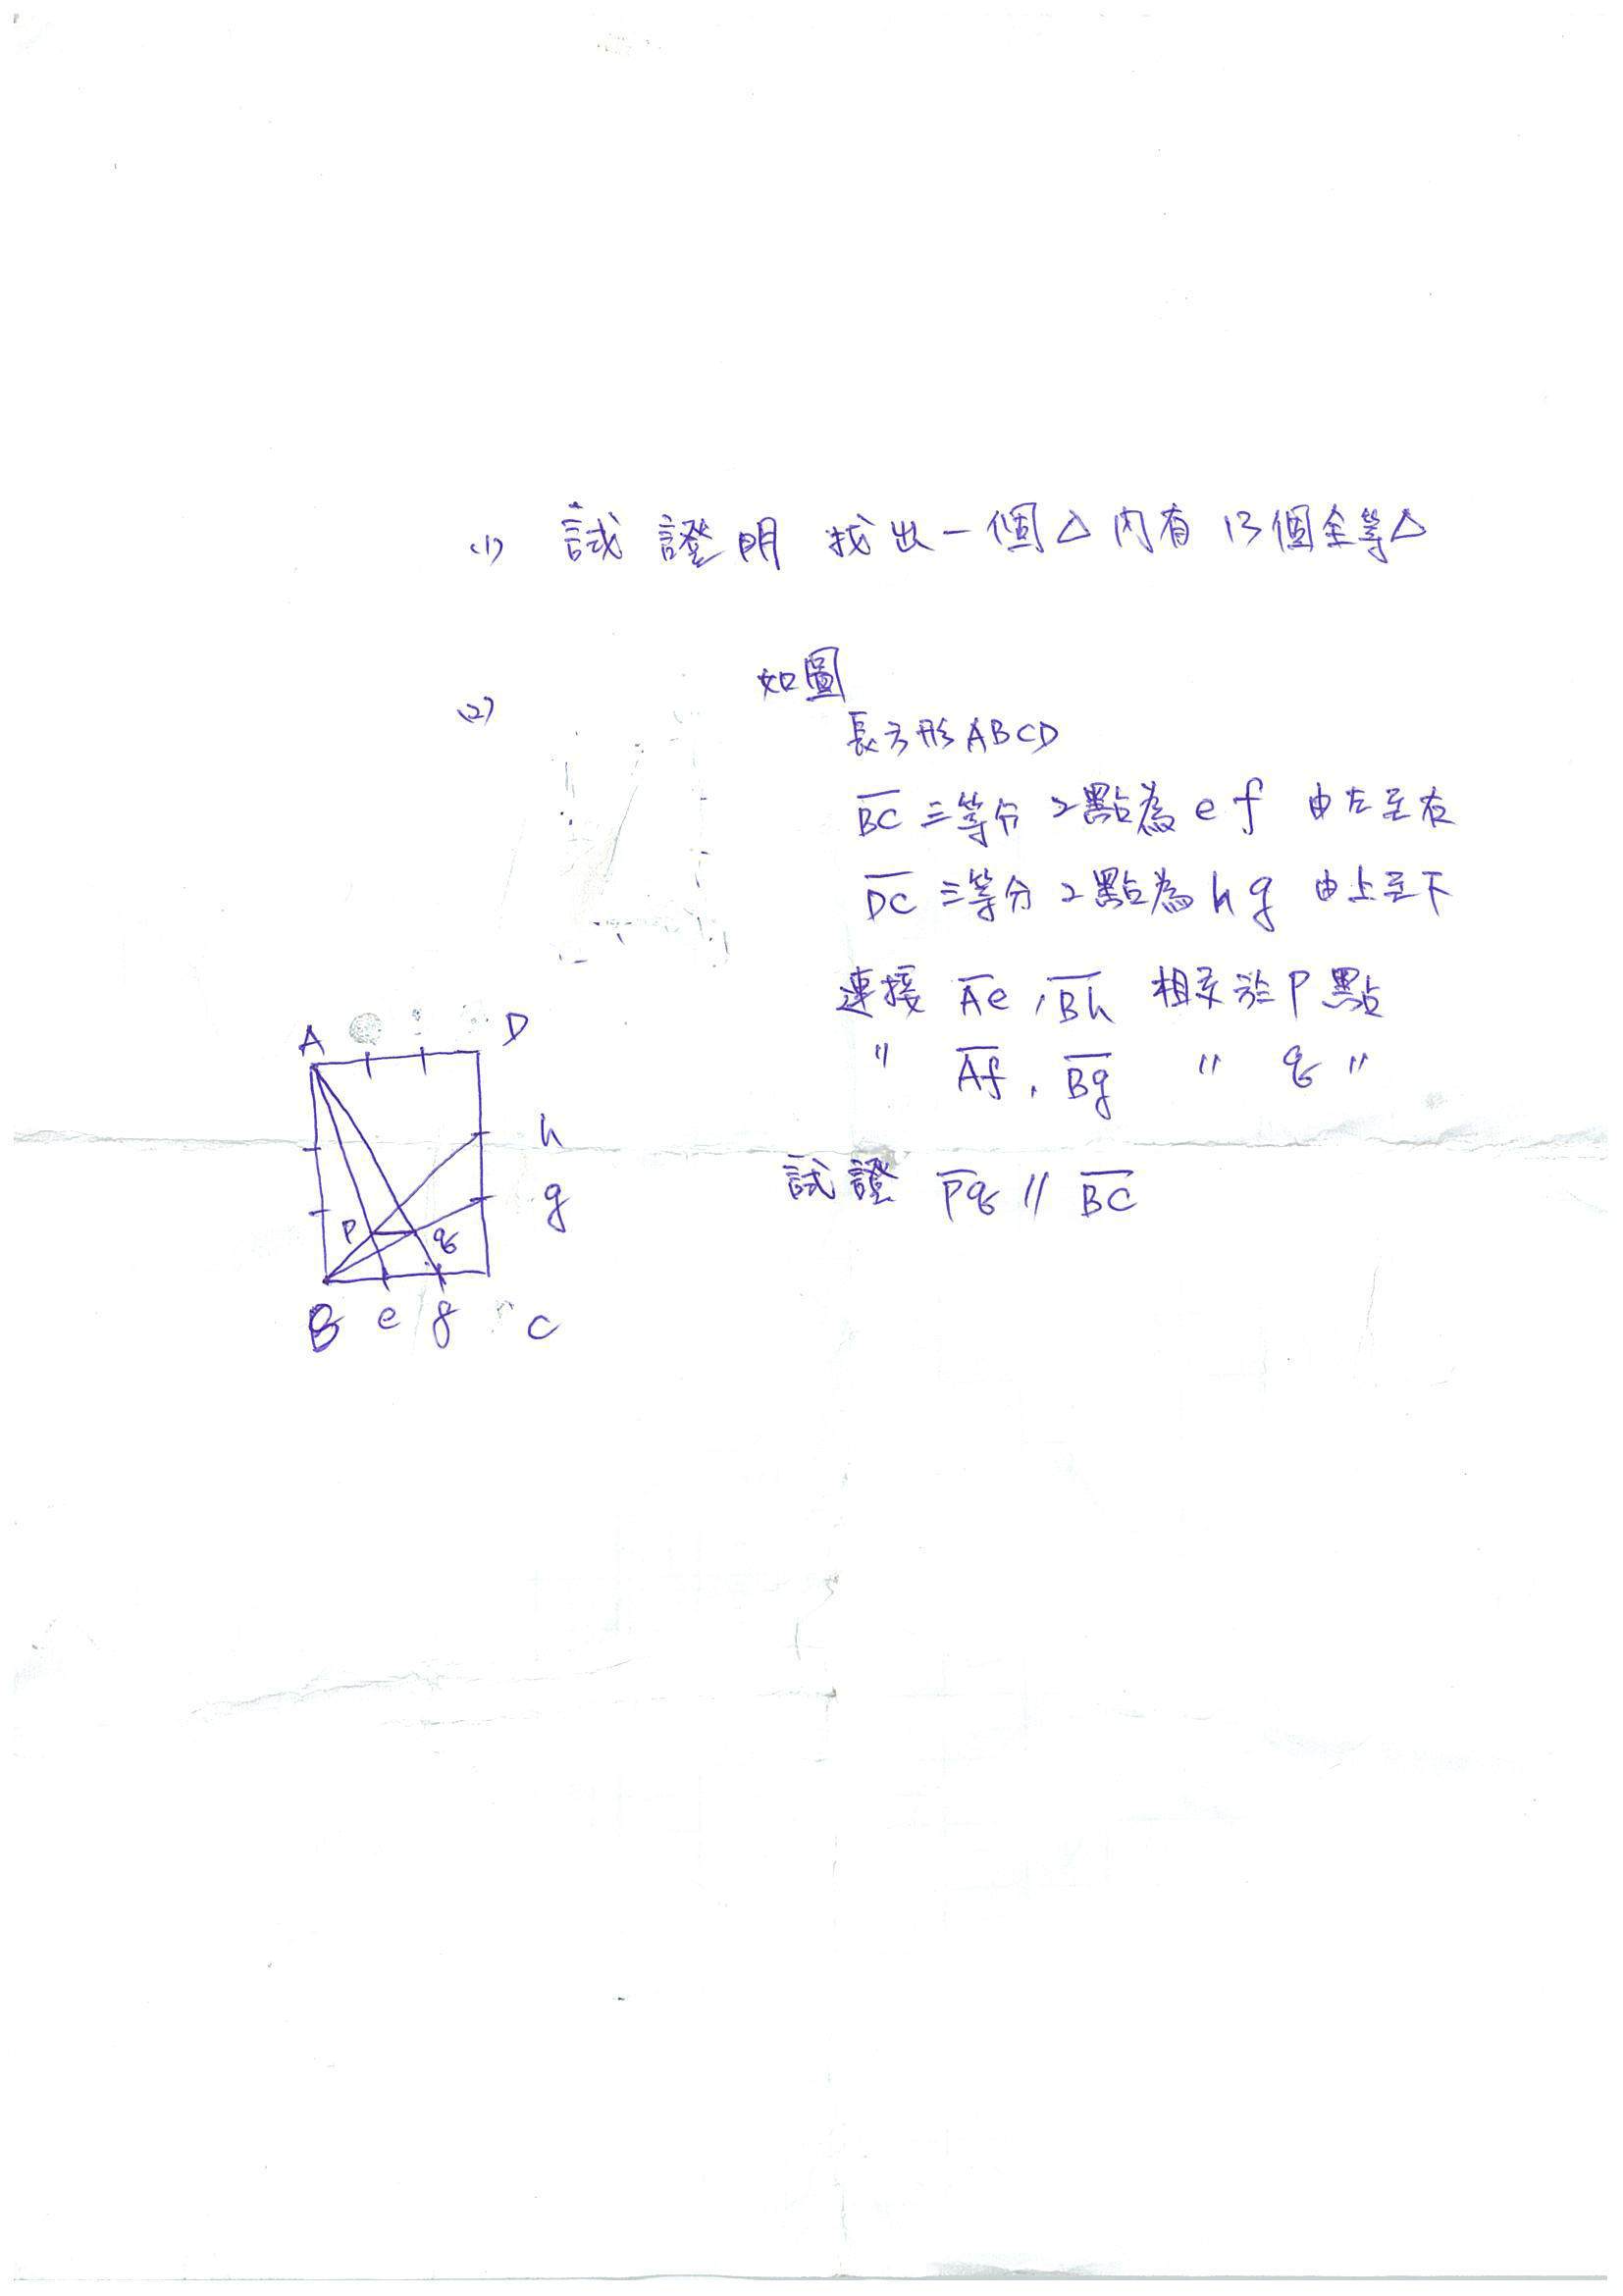 (1) 試證明 找出一個△內有13個全等△
(2) 如圖
長方形ABCD
BC 三等分 2點為 e f 由左至右
DC 三等分 2點為 h g 由上至下
連接 Ae, Bh 相交於 P 點
" Af, Bg " q "
試證 Pq // BC
A D
h
g
P q
B e f C